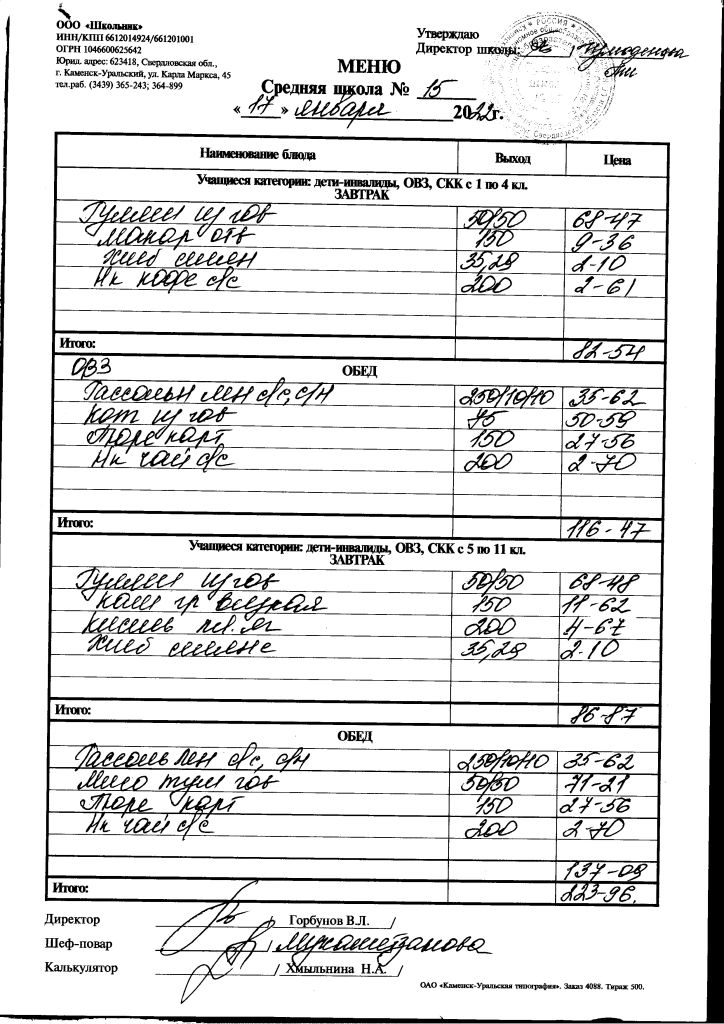 ООО «Школьник»
ИНН/КПП 6612014924/661201001
ОГРН 1046600625642
Юрид. адрес: 623418, Свердловская обл.,
г. Каменск-Уральский, ул. Карла Маркса, 45
тел.раб. (3439) 365-243; 364-899
Утверждаю
Директор школы:
МЕНЮ
Средняя школа № 15
«17» января 2022г.
Наименование блюда Выход Цена
Учащиеся категории: дети-инвалиды, ОВЗ, СКК с 1 по 4 кл.
ЗАВТРАК
Гуляш из гов 50/50 68-47
Макар отв 150 9-36
Хлеб 35,29 2-10
Нк кофе с/с 200 2-61
Итого: 82-54
ОВЗ ОБЕД
Рассольн лен с/с, с/н 250/10/10 35-62
Кот из гов 75 50-59
Пюре карт 150 27-56
Нк чай с/с 200 2-70
Итого: 116-47
Учащиеся категории: дети-инвалиды, ОВЗ, СКК с 5 по 11 кл.
ЗАВТРАК
Гуляш из гов 50/50 68-48
Каш гр вязкая 150 11-62
Кисель пл. яг 200 4-67
Хлеб 35,29 2-10
Итого: 86-87
ОБЕД
Рассоль лен с/с, с/н 250/10/10 35-62
Мясо туш гов 50/50 71-21
Пюре карт 150 27-56
Нк чай с/с 200 2-70
137-09
Итого: 223-96.
Директор / Горбунов В.Л. /
Шеф-повар / Мухаметзанова
Калькулятор / Хмыльнина Н.А. /
ОАО «Каменск-Уральская типография». Заказ 4088. Тираж 500.